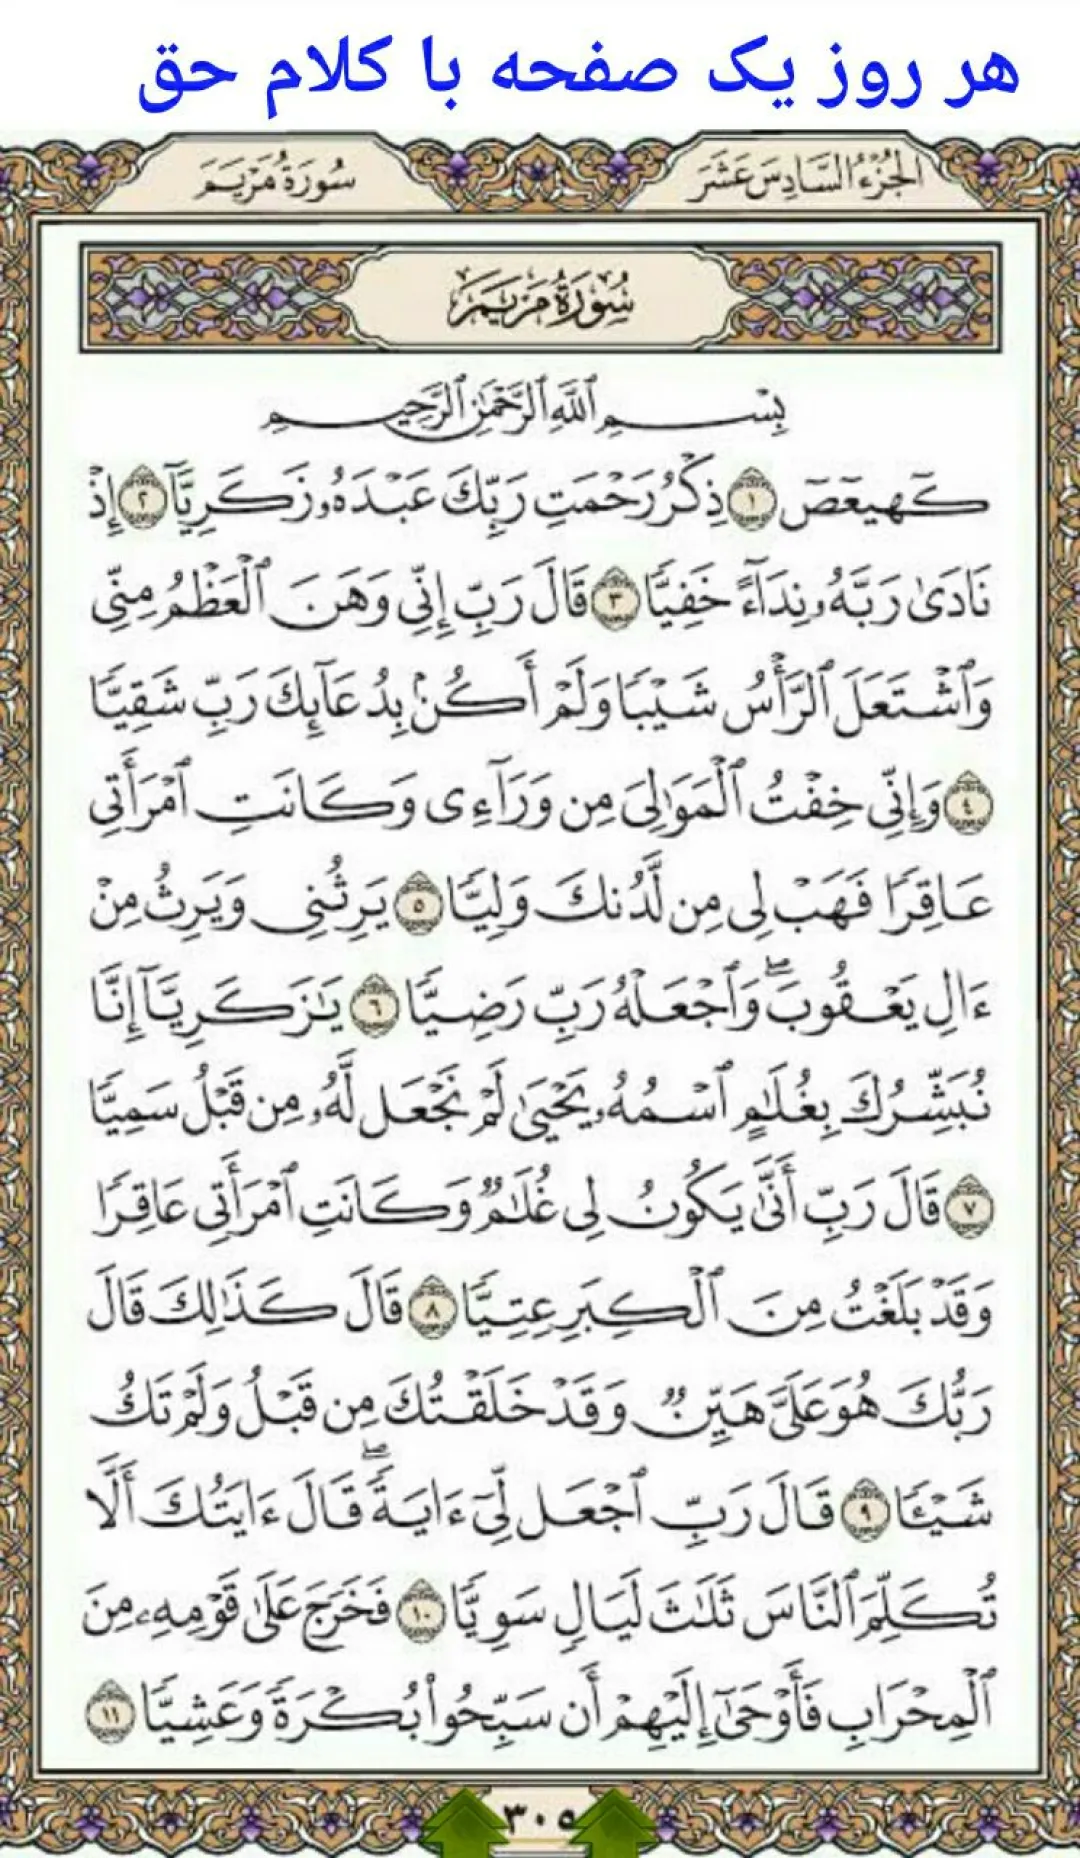 هر روز یک صفحه با کلام حق
الجُزْءُ السَّادِسَ عَشَرَ
سُورَةُ مَرْيَمَ
سُورَةُ مَرْيَمَ
بِسْمِ ٱللَّهِ ٱلرَّحْمَٰنِ ٱلرَّحِيمِ
كٓهيعٓصٓ ١ ذِكْرُ رَحْمَتِ رَبِّكَ عَبْدَهُۥ زَكَرِيَّآ ٢ إِذْ
نَادَىٰ رَبَّهُۥ نِدَآءً خَفِيًّا ٣ قَالَ رَبِّ إِنِّى وَهَنَ ٱلْعَظْمُ مِنِّى
وَٱشْتَعَلَ ٱلرَّأْسُ شَيْبًا وَلَمْ أَكُنۢ بِدُعَآئِكَ رَبِّ شَقِيًّا
٤ وَإِنِّى خِفْتُ ٱلْمَوَٰلِىَ مِن وَرَآءِى وَكَانَتِ ٱمْرَأَتِى
عَاقِرًا فَهَبْ لِى مِن لَّدُنكَ وَلِيًّا ٥ يَرِثُنِى وَيَرِثُ مِنْ
ءَالِ يَعْقُوبَ ۖ وَٱجْعَلْهُ رَبِّ رَضِيًّا ٦ يَٰزَكَرِيَّآ إِنَّا
نُبَشِّرُكَ بِغُلَٰمٍ ٱسْمُهُۥ يَحْيَىٰ لَمْ نَجْعَل لَّهُۥ مِن قَبْلُ سَمِيًّا
٧ قَالَ رَبِّ أَنَّىٰ يَكُونُ لِى غُلَٰمٌ وَكَانَتِ ٱمْرَأَتِى عَاقِرًا
وَقَدْ بَلَغْتُ مِنَ ٱلْكِبَرِ عِتِيًّا ٨ قَالَ كَذَٰلِكَ قَالَ
رَبُّكَ هُوَ عَلَىَّ هَيِّنٌ وَقَدْ خَلَقْتُكَ مِن قَبْلُ وَلَمْ تَكُ
شَيْـًٔا ٩ قَالَ رَبِّ ٱجْعَل لِّىٓ ءَايَةً ۖ قَالَ ءَايَتُكَ أَلَّا
تُكَلِّمَ ٱلنَّاسَ ثَلَٰثَ لَيَالٍ سَوِيًّا ١٠ فَخَرَجَ عَلَىٰ قَوْمِهِۦ مِنَ
ٱلْمِحْرَابِ فَأَوْحَىٰٓ إِلَيْهِمْ أَن سَبِّحُوا۟ بُكْرَةً وَعَشِيًّا ١١
٣٠٥